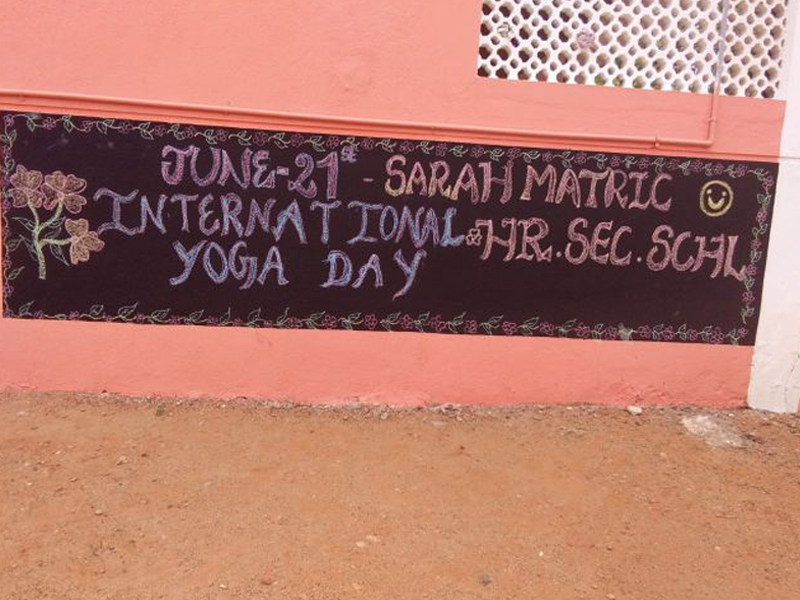 JUNE-21st - SARAH MATRIC
INTERNATIONAL HR.SEC.SCHL
YOGA DAY